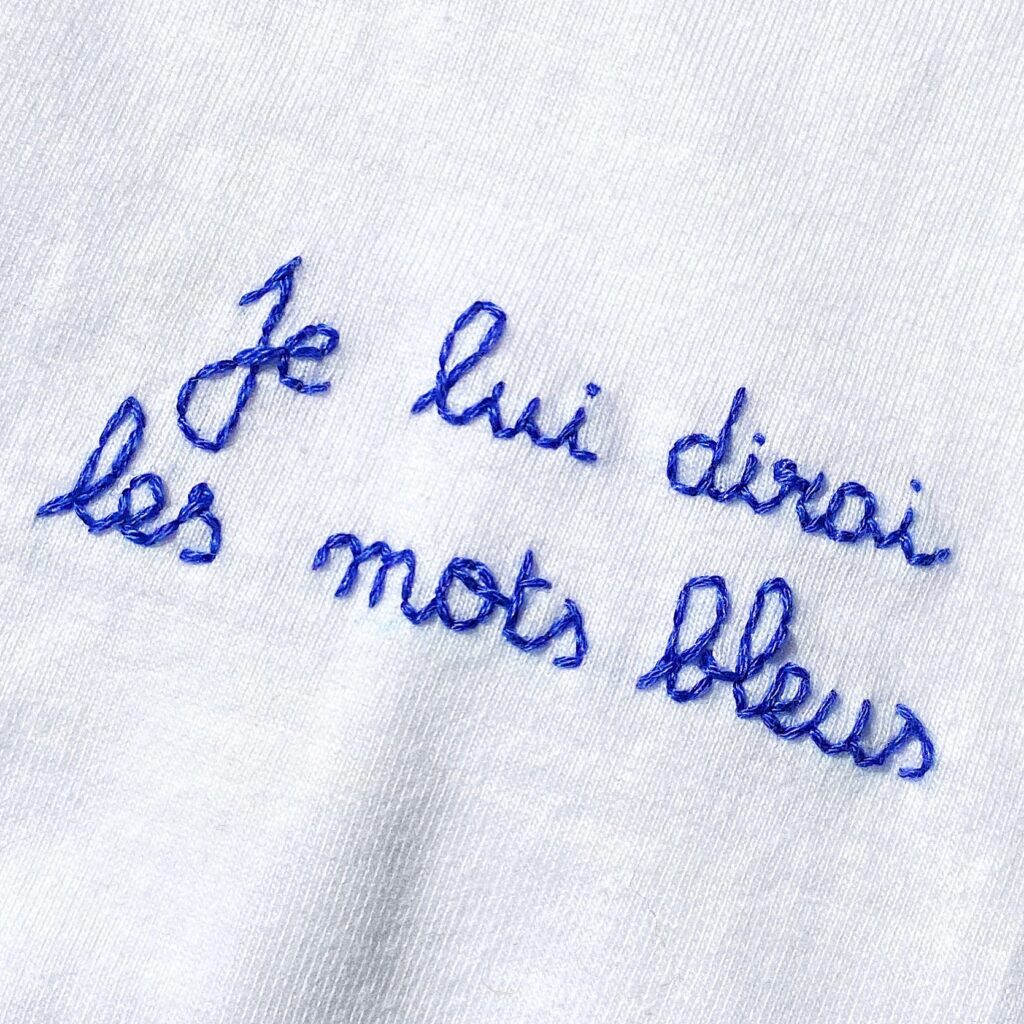 Je lui dirai
les mots bleus